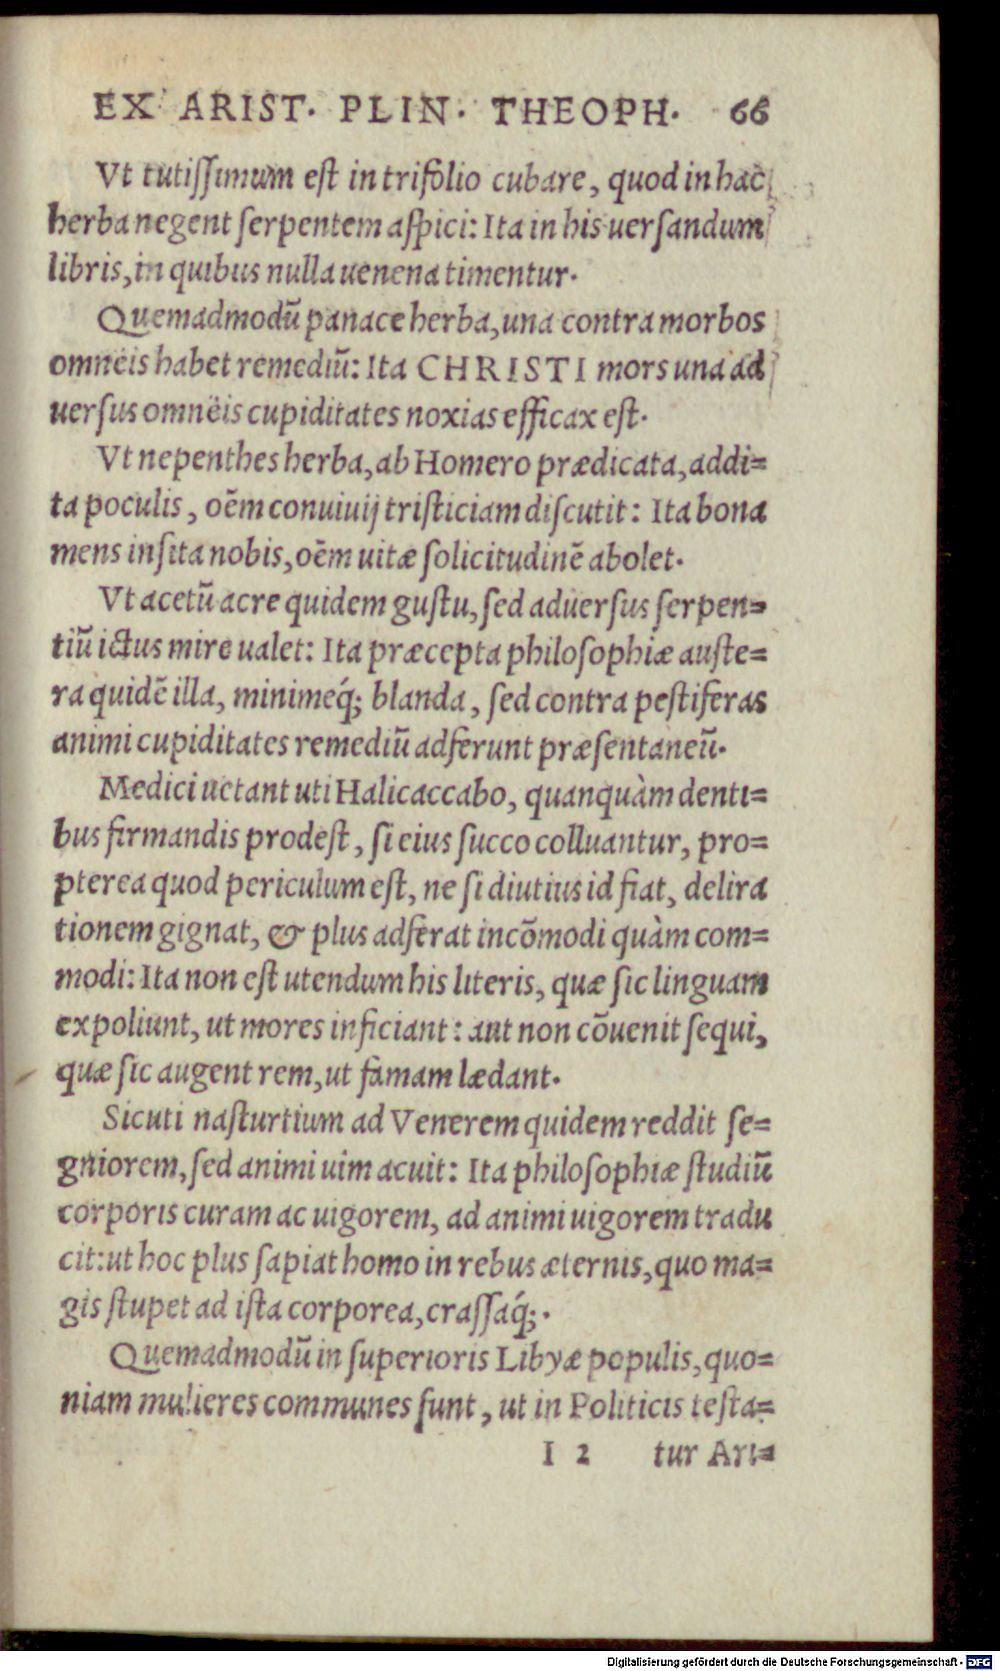 EX ARIST. PLIN. THEOPH. 66
Vt tutiſſimum eſt in trifolio cubare, quod in hac
herba negent ſerpentem aſpici: Ita in his uerſandum
libris, in quibus nulla uenena timentur.
Quemadmodũ panace herba, una contra morbos
omneis habet remediũ: Ita CHRISTI mors una ad
uerſus omneis cupiditates noxias efficax eſt.
Vt nepenthes herba, ab Homero prædicata, addi=
ta poculis, oẽm conuiuij triſticiam diſcutit: Ita bona
mens inſita nobis, oẽm uitæ ſolicitudinẽ abolet.
Vt acetũ acre quidem guſtu, ſed aduerſus ſerpen=
tiũ ictus mire ualet: Ita præcepta philoſophiæ auſte=
ra quidẽ illa, minimeq́; blanda, ſed contra peſtiferas
animi cupiditates remediũ adferunt præſentaneũ.
Medici uetant uti Halicaccabo, quanquàm denti=
bus firmandis prodeſt, ſi eius ſucco colluantur, pro=
pterea quod periculum eſt, ne ſi diutius id fiat, delira
tionem gignat, & plus adferat incõmodi quàm com=
modi: Ita non eſt utendum his literis, quæ ſic linguam
expoliunt, ut mores inficiant: aut non cõuenit ſequi,
quæ ſic augent rem, ut famam lædant.
Sicuti naſturtium ad Venerem quidem reddit ſe=
gniorem, ſed animi uim acuit: Ita philoſophiæ ſtudiũ
corporis curam ac uigorem, ad animi uigorem tradu
cit: ut hoc plus ſapiat homo in rebus æternis, quo ma=
gis ſtupet ad iſta corporea, craſſaq́;.
Quemadmodũ in ſuperioris Libyæ populis, quo=
niam mulieres communes ſunt, ut in Politicis teſta=
I 2 tur Ari=
Digitalisierung gefördert durch die Deutsche Forschungsgemeinschaft - DFG